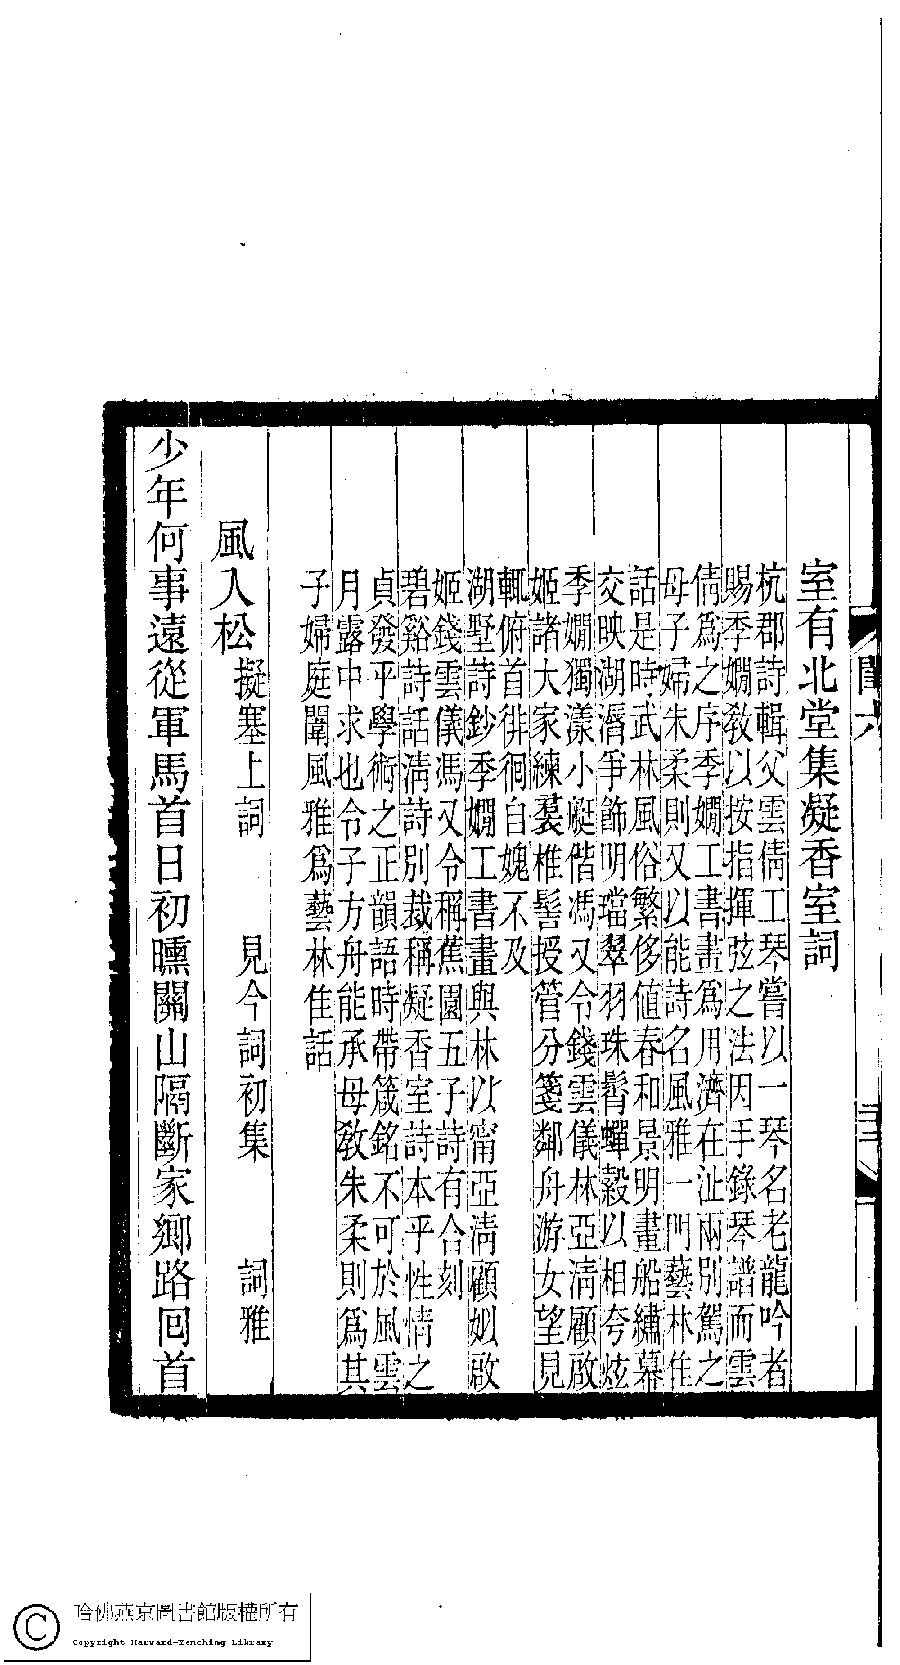 室有北堂集凝香室詞
杭郡詩輯父雲倩工琴嘗以一琴名老龍吟者
賜季嫺敎以按指揮弦之法因手錄琴譜而雲
倩爲之序季嫺工書畫爲用濟在沚兩別駕之
母子婦朱柔則又以能詩名風雅一門藝林佳
話是時武林風俗繁侈値春和景明畫船繡幕
交映湖漘爭飾明璫翠羽珠髾蟬縠以相夸炫
季嫺獨漾小艇偕馮又令錢雲儀林亞淸顧啟
姬諸大家練裠椎髻授管分箋鄰舟游女望見
輒俯首徘徊自媿不及
湖墅詩鈔季嫺工書畫與林以甯亞淸顧姒啟
姬錢雲儀馮又令稱蕉園五子詩有合刻
碧谿詩話淸詩別裁稱凝香室詩本乎性情之
貞發乎學術之正韻語時帶箴銘不可於風雲
月露中求也令子方舟能承母敎朱柔則爲其
子婦庭闈風雅爲藝林佳話
風入松 擬塞上詞 見今詞初集 詞雅
少年何事遠從軍馬首日初曛關山隔斷家鄉路回首
閨六
哈佛燕京圖書館版權所有
Copyright Harvard-Yenching Library